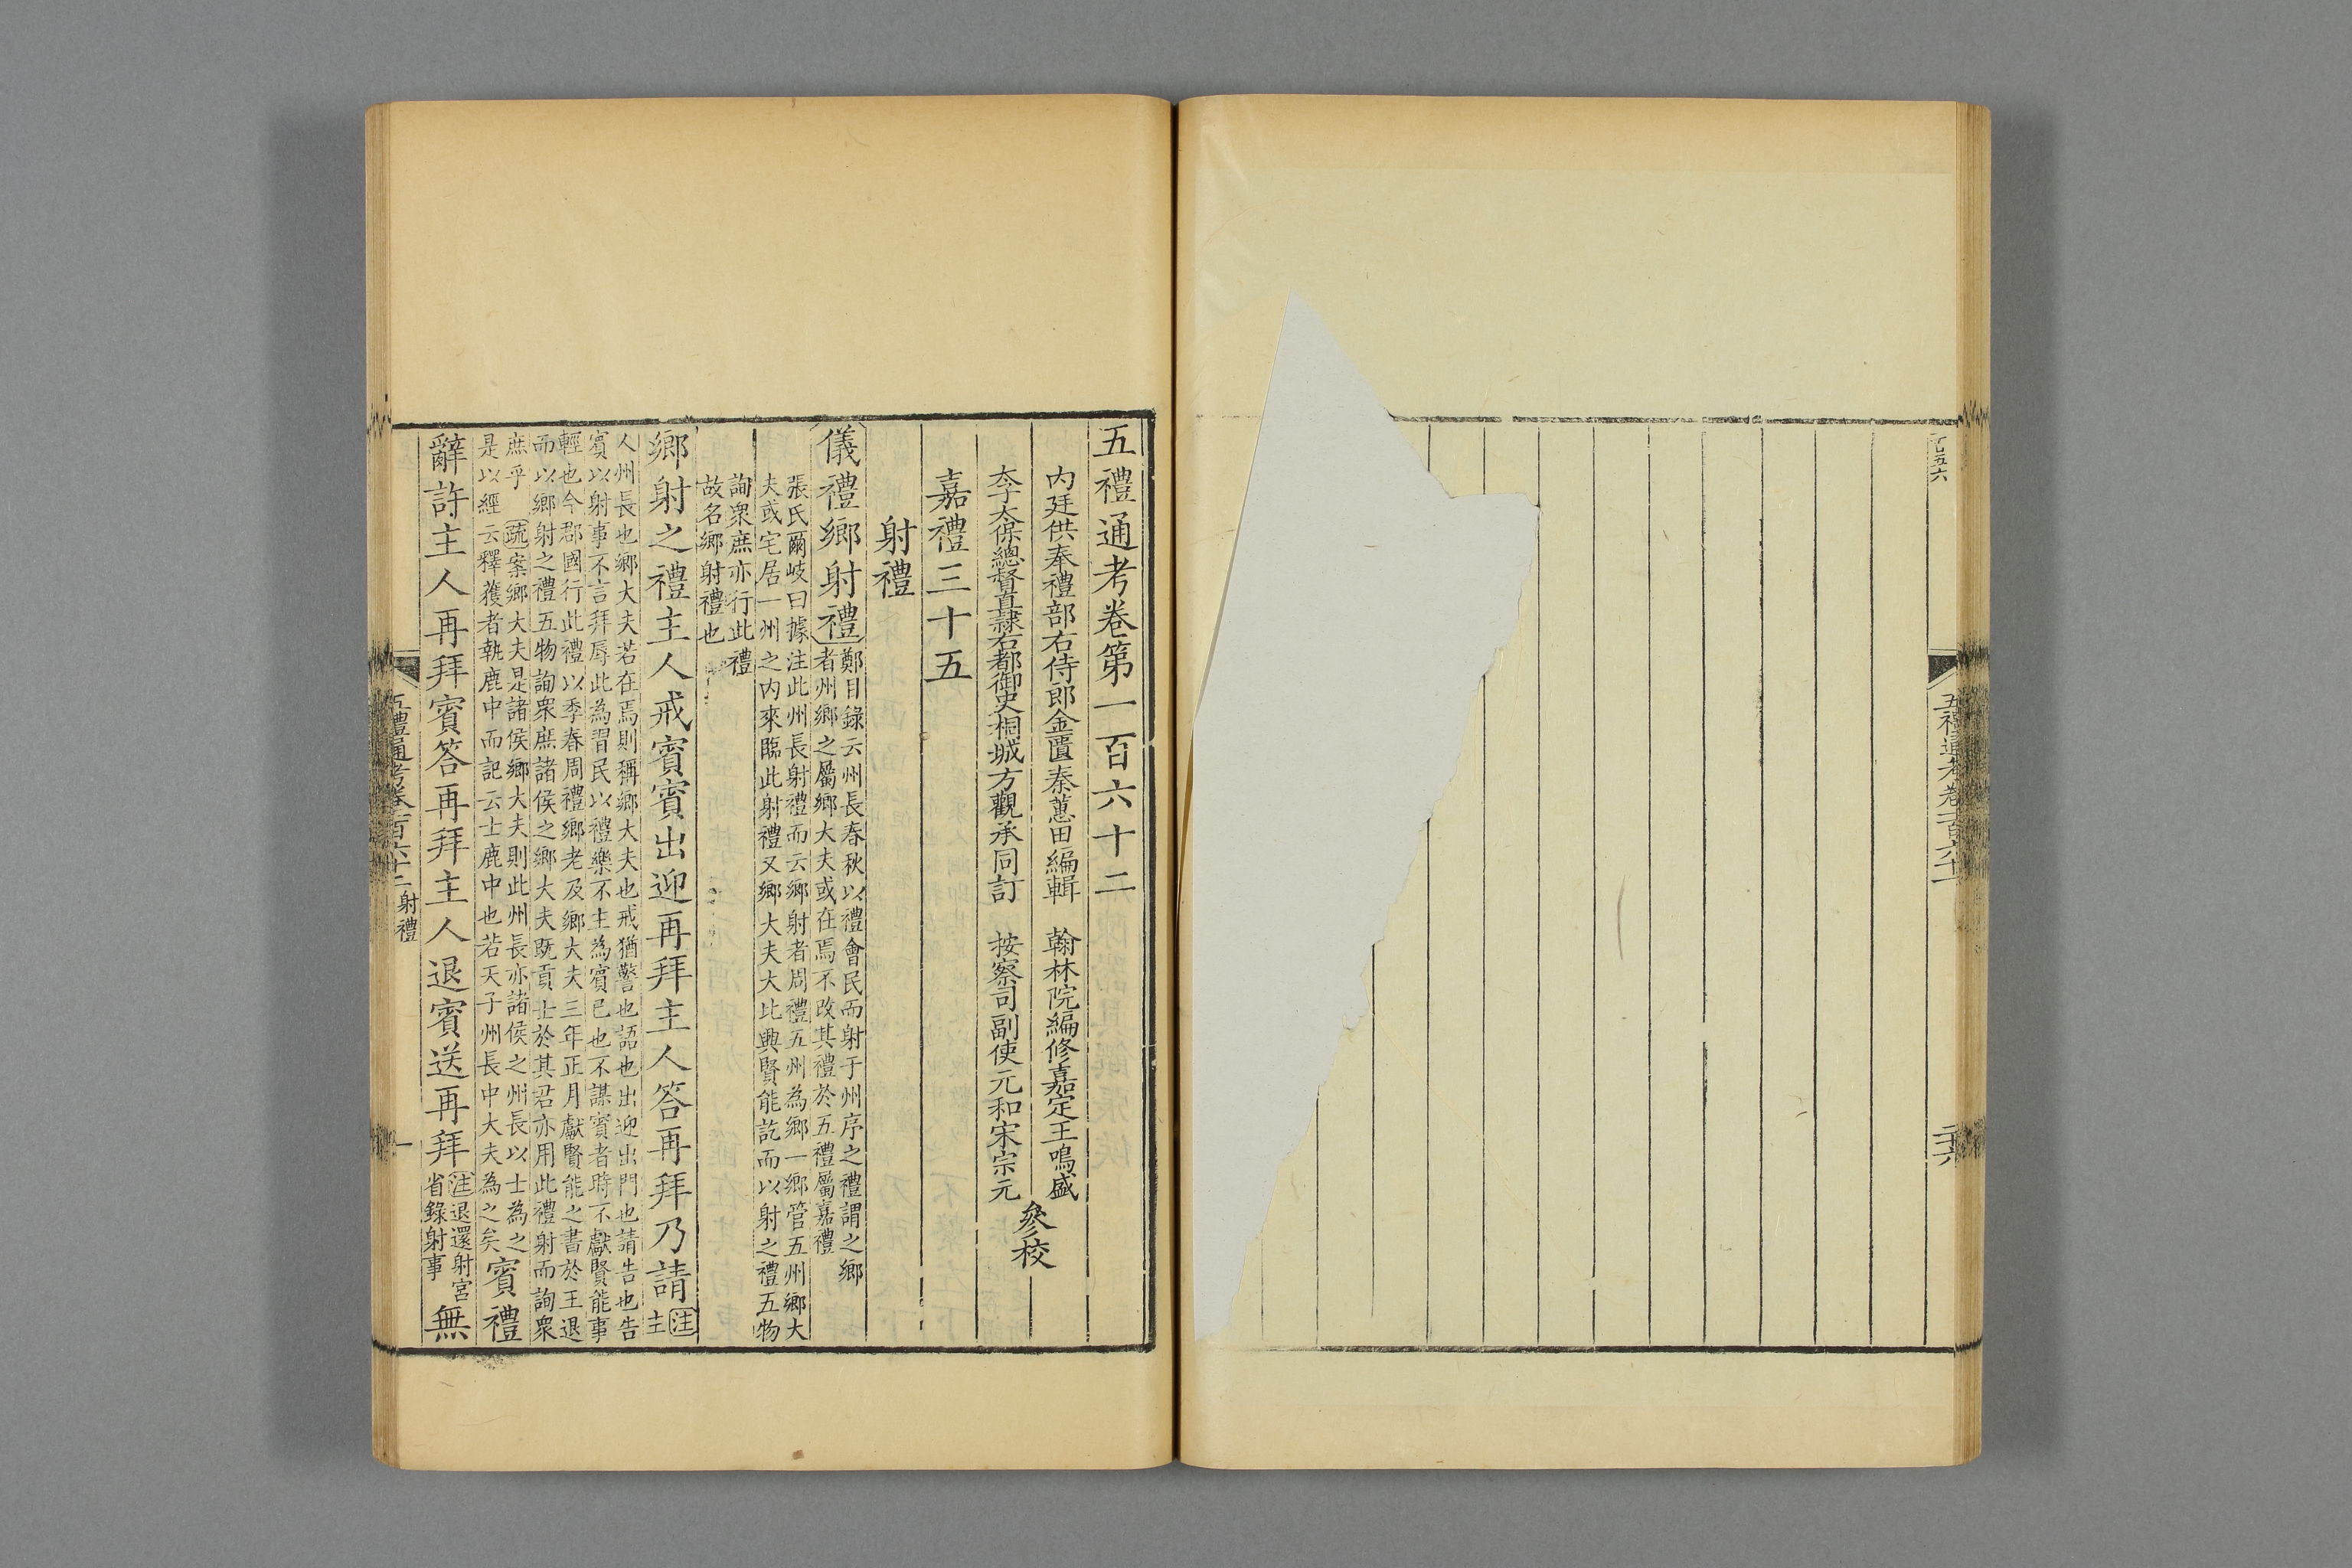 五禮通考卷一百六十一
二十六
五禮通考卷第一百六十二
內廷供奉禮部右侍郎金匱秦蕙田編輯　翰林院編修嘉定王鳴盛
太子太保總督直隸右都御史桐城方觀承同訂　按察司副使元和宋宗元
參校
嘉禮三十五
射禮
儀禮鄉射禮
鄭目錄云州長春秋以禮會民而射于州序之禮謂之鄉
者州鄉之屬鄉大夫或在焉不改其禮於五禮屬嘉禮
張氏爾岐曰據注此州長射禮而云鄉射者周禮五州為鄉一鄉管五州鄉大
夫或宅居一州之內來臨此射禮又鄉大夫大比興賢能訖而以射之禮五物
詢衆庶亦行此禮
故名鄉射禮也
鄉射之禮主人戒賓賓出迎再拜主人答再拜乃請
注
主
人州長也鄉大夫若在焉則稱鄉大夫也戒猶警也語也出迎出門也請告也告
賓以射事不言拜辱此為習民以禮樂不主為賓已也不謀賓者時不獻賢能事
輕也今郡國行此禮以季春周禮鄉老及鄉大夫三年正月獻賢能之書於王退
而以鄉射之禮五物詢衆庶諸侯之鄉大夫既貢士於其君亦用此禮射而詢衆
庶乎　疏案鄉大夫是諸侯鄉大夫則此州長亦諸侯之州長以士為之
是以經云釋獲者執鹿中而記云士鹿中也若天子州長中大夫為之矣
賓禮
辭許主人再拜賓答再拜主人退賓送再拜
注退還射宮
省錄射事
無
五禮通考卷一百六十二
射禮
一